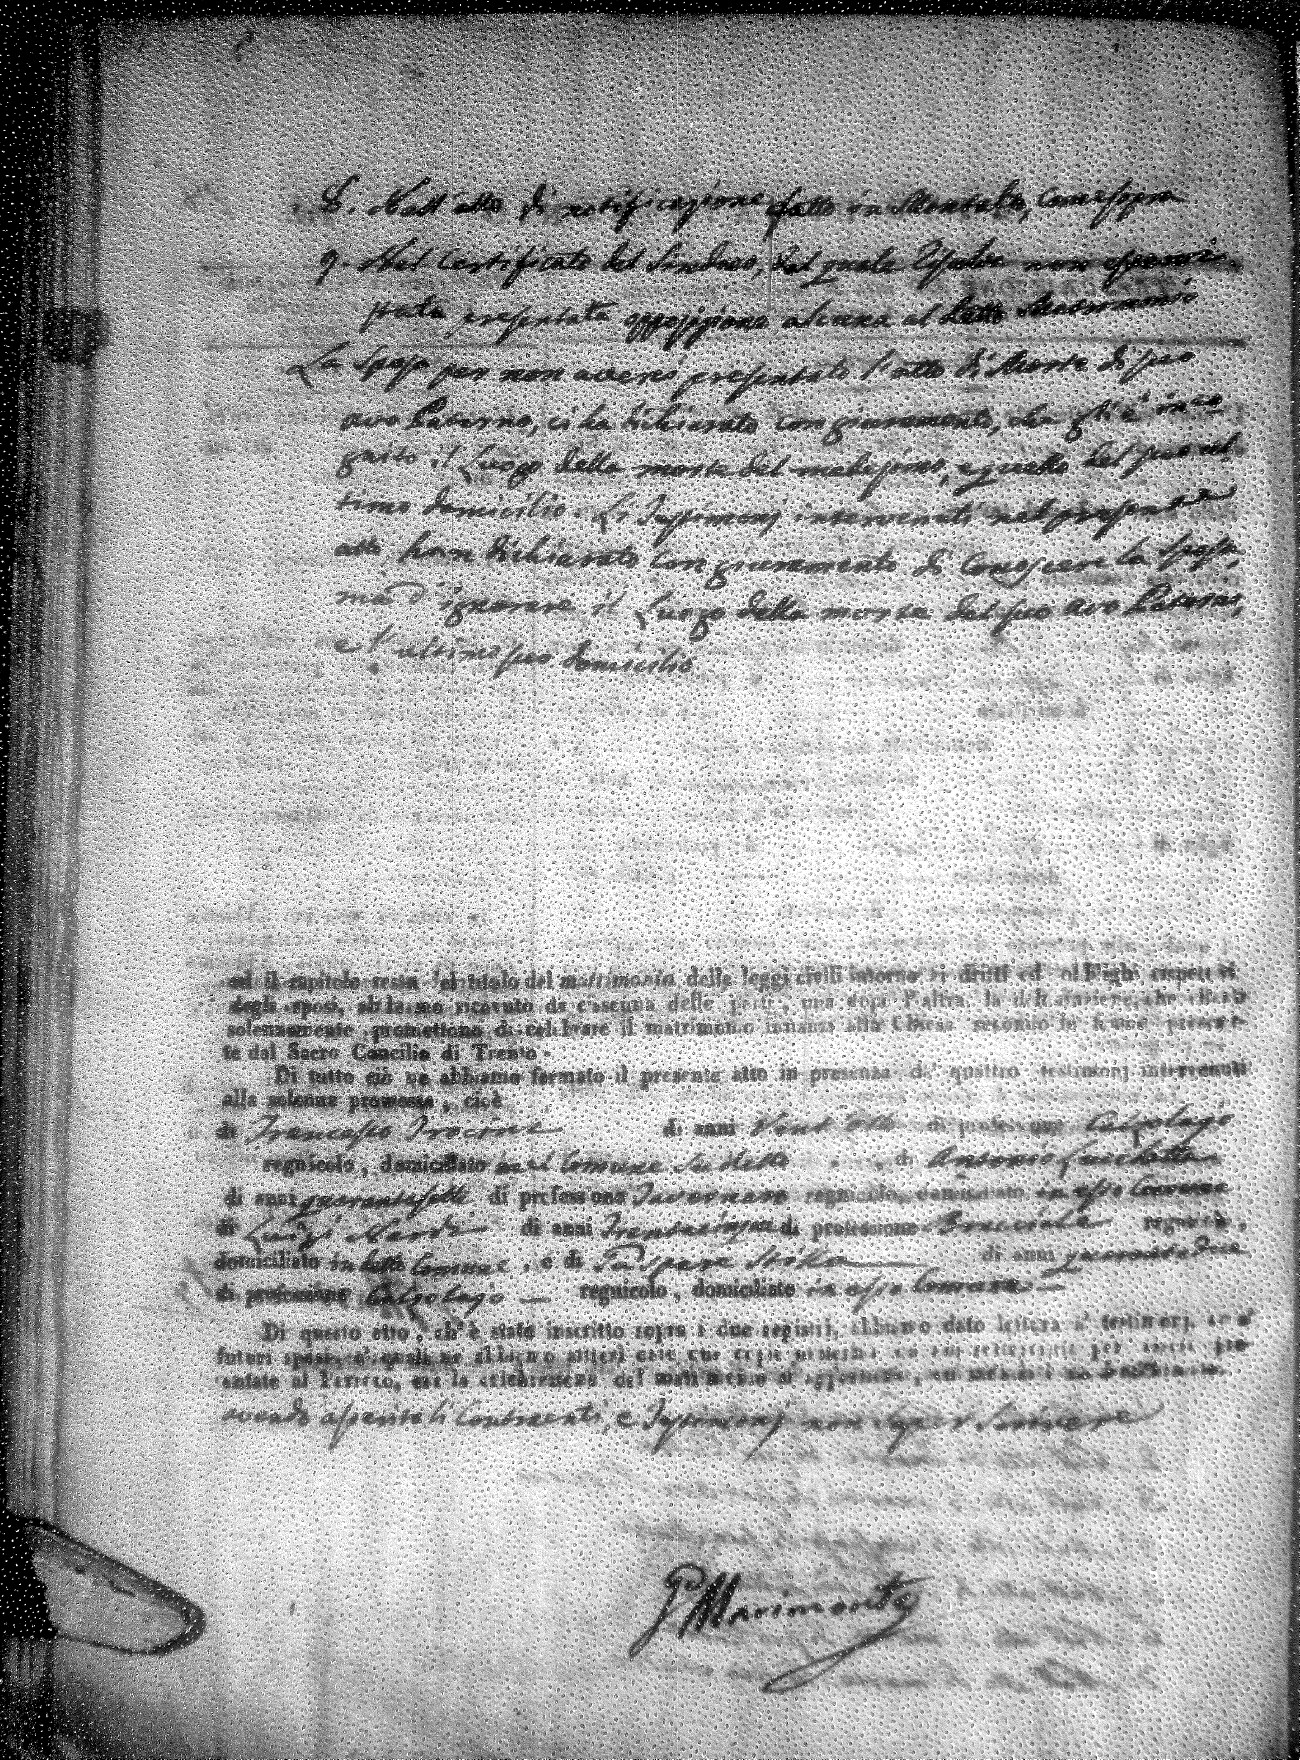 8. Dall'atto di notificazione fatto in Montalto, come sopra
9. Nel Certificato del Sindaco, dal quale non essere
stata presentata opposizione alcuna al detto Matrimonio
La sposa per non avere presentato l'atto di Morte di suo
avo Paterno, ci ha dichiarato con giuramento, che gl'è inco
gnito il Luogo della morte del medesimo, e quello del suo ul
timo domicilio. Li Testimonj intervenuti nel presente
atto han dichiarato con giuramento di conoscere la sposa,
ma d'ignorare il Luogo della morte del suo avo Paterno,
e l'ultimo suo domicilio
ed il capitolo sesto del titolo del matrimonio delle leggi civili intorno ai dritti ed obblighi rispettivi
degli sposi, abbiamo ricevuto da ciascuna delle parti, una dopo l'altra, la dichiarazione, che elleno
solennemente promettono di celebrare il matrimonio innanzi alla Chiesa secondo le forme prescrit-
te dal Sacro Concilio di Trento.
Di tutto ciò ne abbiamo formato il presente atto in presenza de' quattro testimonj intervenuti
alla solenne promessa, cioè
di Francesco di anni Vent'otto di professione Calzolajo
regnicolo, domiciliato nel Comune sudetto, di Antonio
di anni quarantasette di professione Tavernaro regnicolo, domiciliato in esso Comune
di Luigi Nardi di anni Trentacinque di professione Bracciale regnicolo,
domiciliato in detto Comune, e di Gaspare di anni quarantadue
di professione Calzolajo regnicolo, domiciliato in esso Comune
Di questo atto, ch'è stato inscritto sopra i due registri, abbiamo dato lettura a' testimonj, ed a'
futuri sposi, a' quali ne abbiamo altresì date due copie uniformi da noi sottoscritte per essere pre-
sentate al Parroco, cui la celebrazione del matrimonio si appartiene, ed indi si è da noi firmato
avendo asserito li Contraenti, e Testimonj non saper scrivere
G. Marimonte